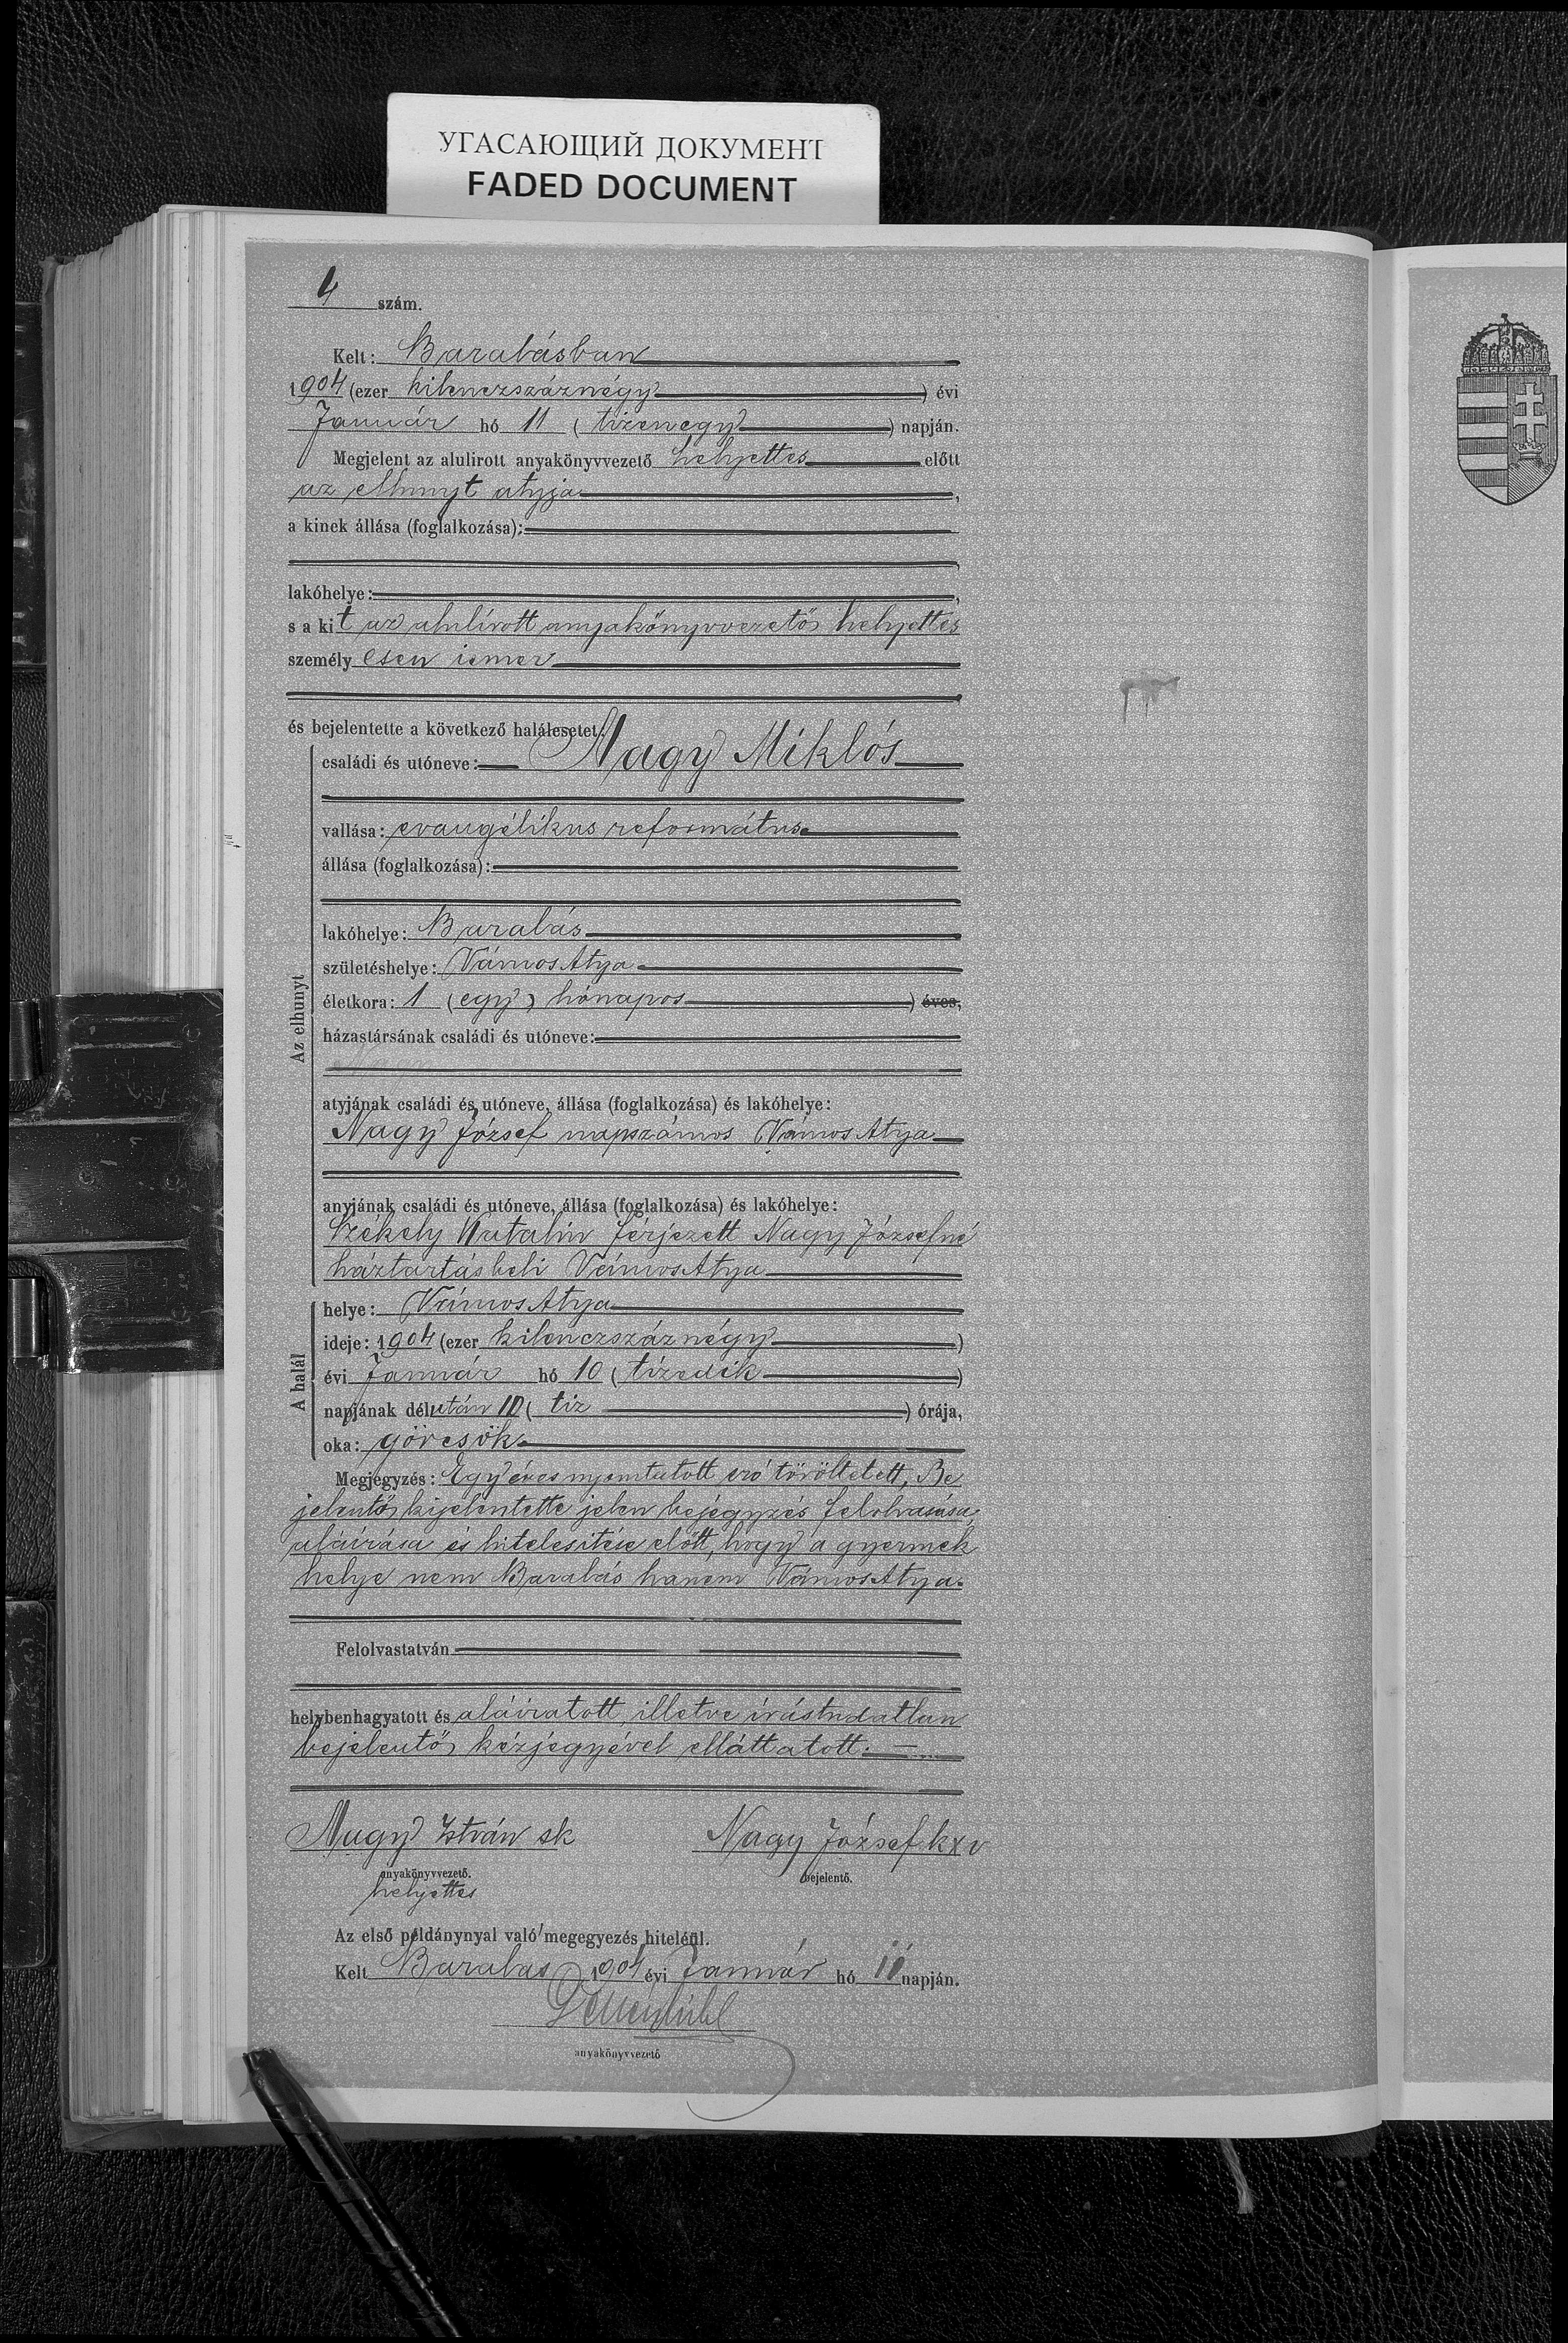 УГАСАЮЩИЙ ДОКУМЕНТ
FADED DOCUMENT
4 szám.
Kelt: Barabásban
1904 (ezer kilenczszáznégy) évi
Január hó 11 (tizenegy) napján.
Megjelent az alulirott anyakönyvvezető helyettes előtt
az elhunyt atyja,
a kinek állása (foglalkozása):
lakóhelye:
s a kit az alulírott anyakönyvvezető helyettes
személyesen ismer
és bejelentette a következő halálesetet:
Az elhunyt
családi és utóneve: Nagy Miklós
vallása: evangélikus református
állása (foglalkozása):
lakóhelye: Barabás
születéshelye: VámosAtya
életkora: 1 (egy) hónapos) éves,
házastársának családi és utóneve:
atyjának családi és utóneve, állása (foglalkozása) és lakóhelye:
Nagy József napszámos VámosAtya
anyjának családi és utóneve, állása (foglalkozása) és lakóhelye:
Székely Katalin férjezett Nagy Józsefné
háztartásbeli VámosAtya
A halál
helye: VámosAtya
ideje: 1904 (ezer kilenczszáznégy)
évi Január hó 10 (tizedik)
napjának délután 10 (tiz) órája,
oka: görcsök
Megjegyzés: Egy éves nyomtatott szó töröltetett, Be
jelentő kijelentette jelen bejegyzés felolvasása,
aláirása és hitelesitése előtt, hogy a gyermek
helye nem Barabás hanem VámosAtya.
Felolvastatván
helybenhagyatott és aláiratott, illetve irástudatlan
bejelentő kézjegyével elláttatott.
Nagy István sk
Nagy József kxv
anyakönyvvezető.
bejelentő.
helyettes
Az első példánynyal való megegyezés hiteléül.
Kelt Barabas 1904 évi Január hó 11 napján.
anyakönyvvezető